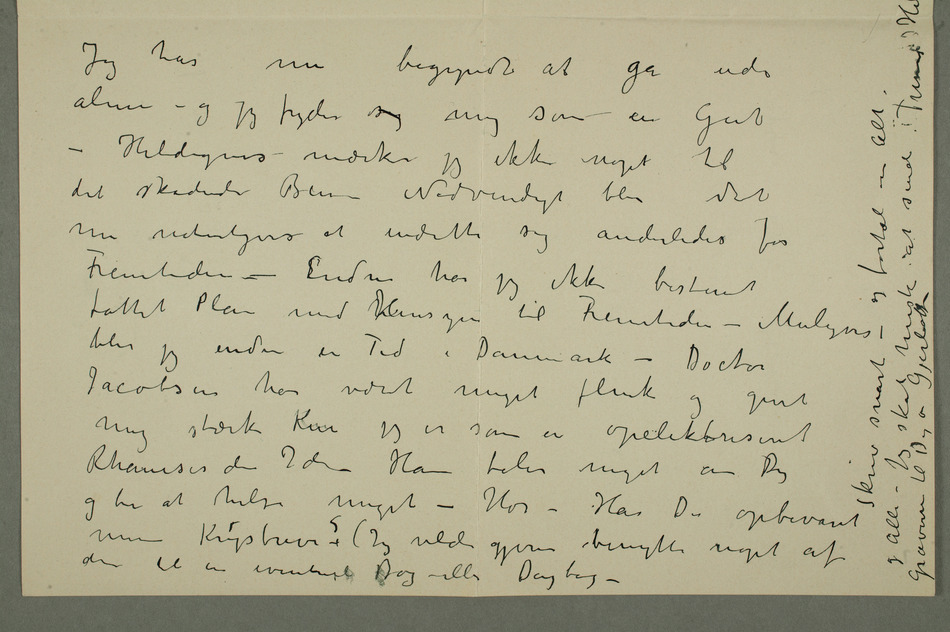 Jeg har nu begyndt at gå uds
alene – og jeg fryder mig som en Gut
– Heldigvis mærker jeg ikke noget til
det skadende Been Nødvendigt blir det
nu naturligvis at indrette sig anderledes for
Fremtiden – Endnu har jeg ikke bestemt
fattet Plan med Hensyn til Fremtiden – Muligvis
blir jeg endnu en Tid i Danmark – Doctor
Jacobsen har været meget flink og gjort
mig stærk Kun jeg er som en opelektriseret
Rhamses den IIden Han taler meget om Dig
og ber at hilse meget – Hør – Har Du opbevaret
mine Krigsbreve? (Jeg vilde gjerne benytte noget af
dem til en eventuel Bog eller Dagbog –
Skriv snart – og fortæl om alt.
og alle – Jeg skal huske at sende
grønne til Dig og Gjerløff